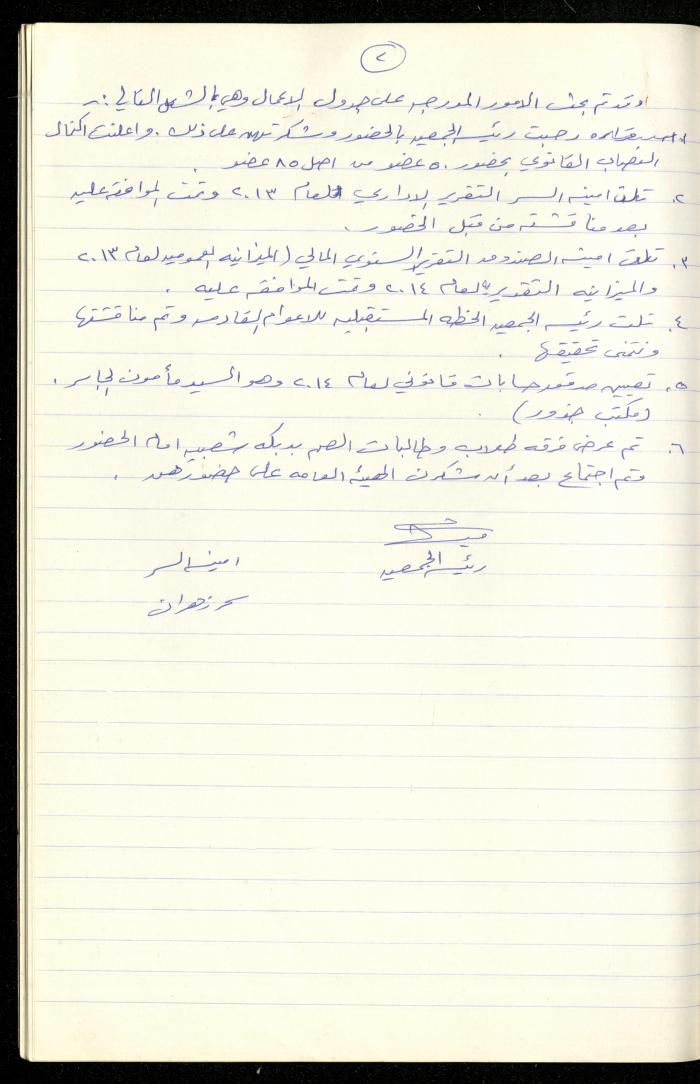 ٢
وقد تم بحث الامور المدرجه على جدول الاعمال وهي بالشكل التالي :-
١. رحبت رئيسة الجمعيه بالحضور وشكرتهن على ذلك . واعلنت اكتمال
النصاب القانوني بحضور ٥٠ عضو من اصل ٨٥ عضو .
٢. تلت امينة السر التقرير الاداري لعام ٢٠١٣ وتمت الموافقه عليه
بعد مناقشته من قبل الحضور .
٣. تلت امينة الصندوق التقرير السنوي المالي (الميزانيه العموميه لعام ٢٠١٣
والميزانيه التقديريه لعام ٢٠١٤ وتمت الموافقه عليه .
٤. تلت رئيسة الجمعيه الخطه المستقبليه للاعوام القادمه وتم مناقشتها
ونتمنى تحقيقها .
٥. تعيين مدقق حسابات قانوني لعام ٢٠١٤ وهو السيد مأمون الجاسر .
(مكتب جذور) .
٦. تم عرض فرقه طلاب وطالبات الصم بدبكه شعبيه امام الحضور
وتم اجتماع بعد أن شكرن الهيئه العامه على حضورهن .
رئيسة الجمعيه
امينة السر
سحر زهران